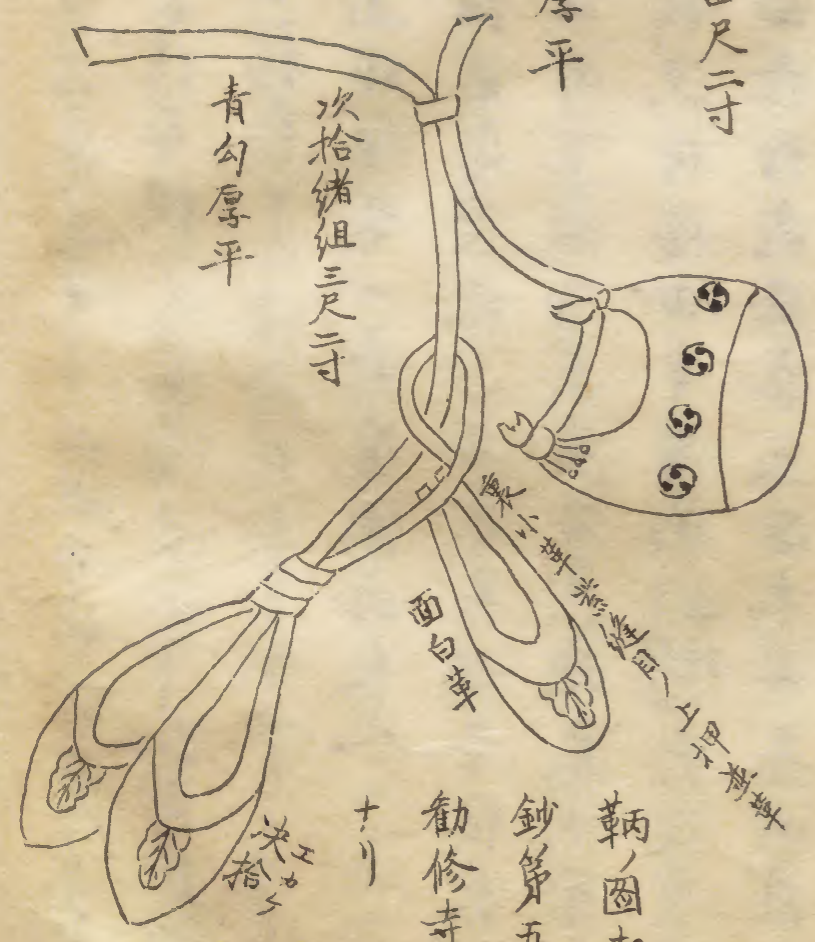 尺二寸
厚平
次拾緒組三尺二寸
青匂厚平
裏小革
縫目ノ上押
面白革
鞆ノ図
鈔第五
勧修寺
ナリ
決拾
エカケ